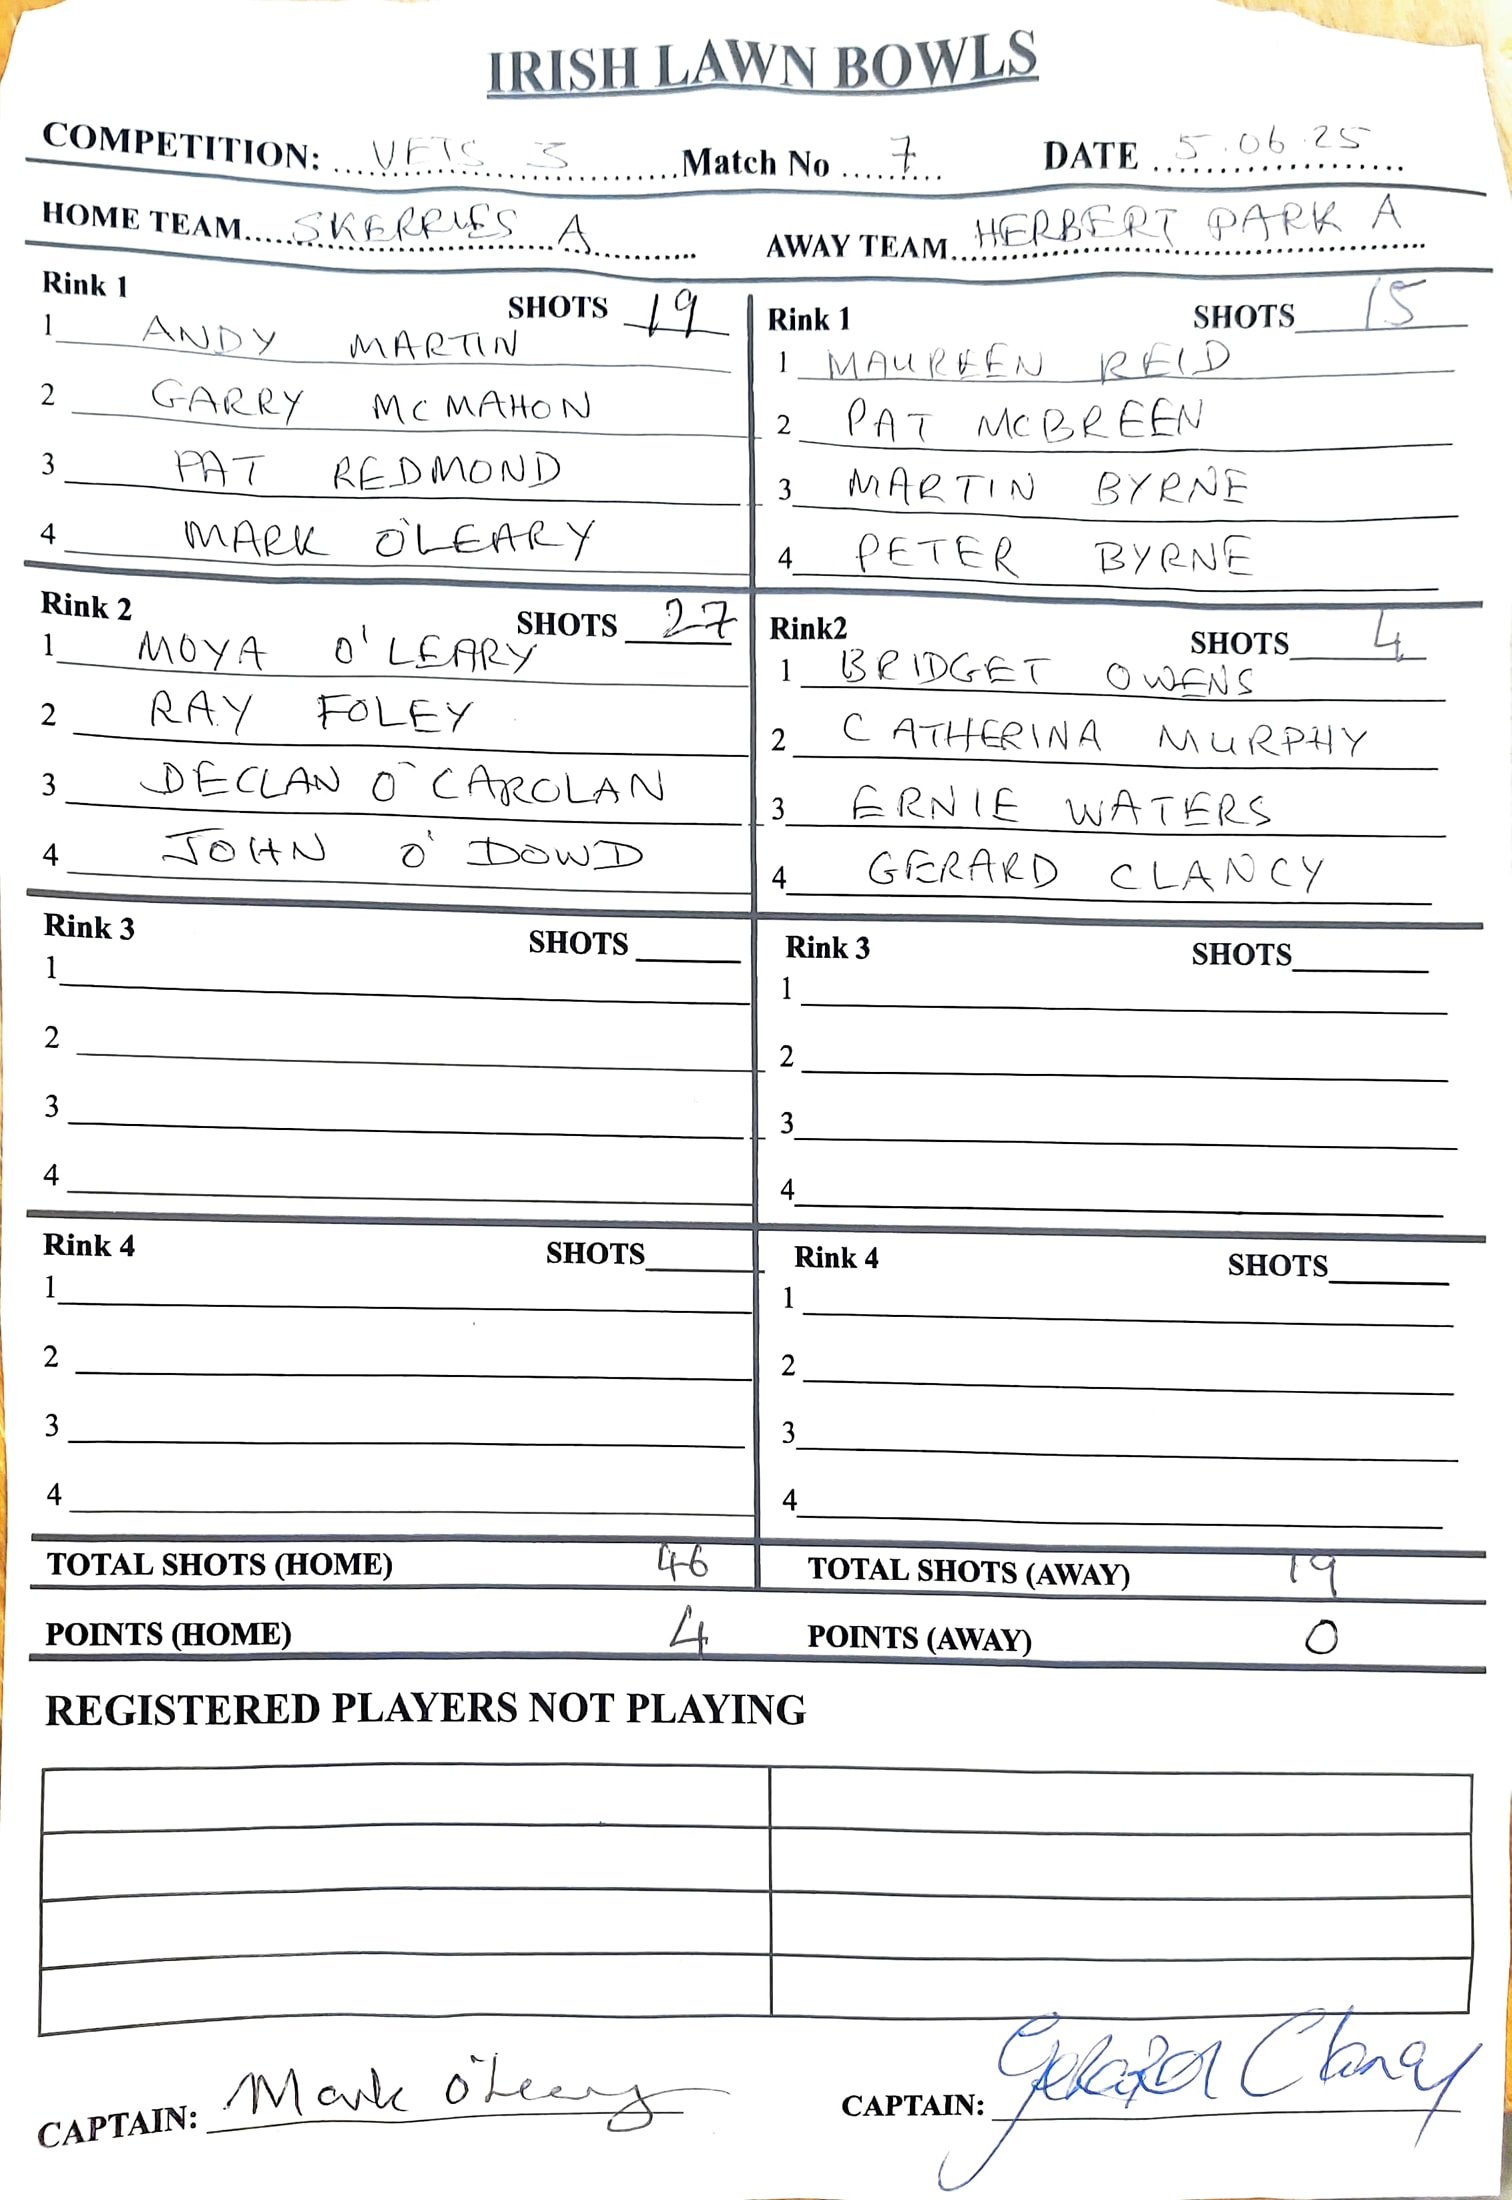 IRISH LAWN BOWLS
COMPETITION: VETS 3 Match No 7 DATE 5.06.25
HOME TEAM SKERRIES A AWAY TEAM HERBERT PARK A
Rink 1 SHOTS 19
1 ANDY MARTIN
2 GARRY MCMAHON
3 PAT REDMOND
4 MARK O'LEARY
Rink 1 SHOTS 15
1 MAUREEN REID
2 PAT MCBREEN
3 MARTIN BYRNE
4 PETER BYRNE
Rink 2 SHOTS 27
1 MOYA O'LEARY
2 RAY FOLEY
3 DECLAN O'CAROLAN
4 JOHN O'DOWD
Rink2 SHOTS 4
1 BRIDGET OWENS
2 CATHERINA MURPHY
3 ERNIE WATERS
4 GERARD CLANCY
Rink 3 SHOTS
1
2
3
4
Rink 3 SHOTS
1
2
3
4
Rink 4 SHOTS
1
2
3
4
Rink 4 SHOTS
1
2
3
4
TOTAL SHOTS (HOME) 46 TOTAL SHOTS (AWAY) 19
POINTS (HOME) 4 POINTS (AWAY) 0
REGISTERED PLAYERS NOT PLAYING
CAPTAIN: Mark O'Leary CAPTAIN: Gerard Clancy